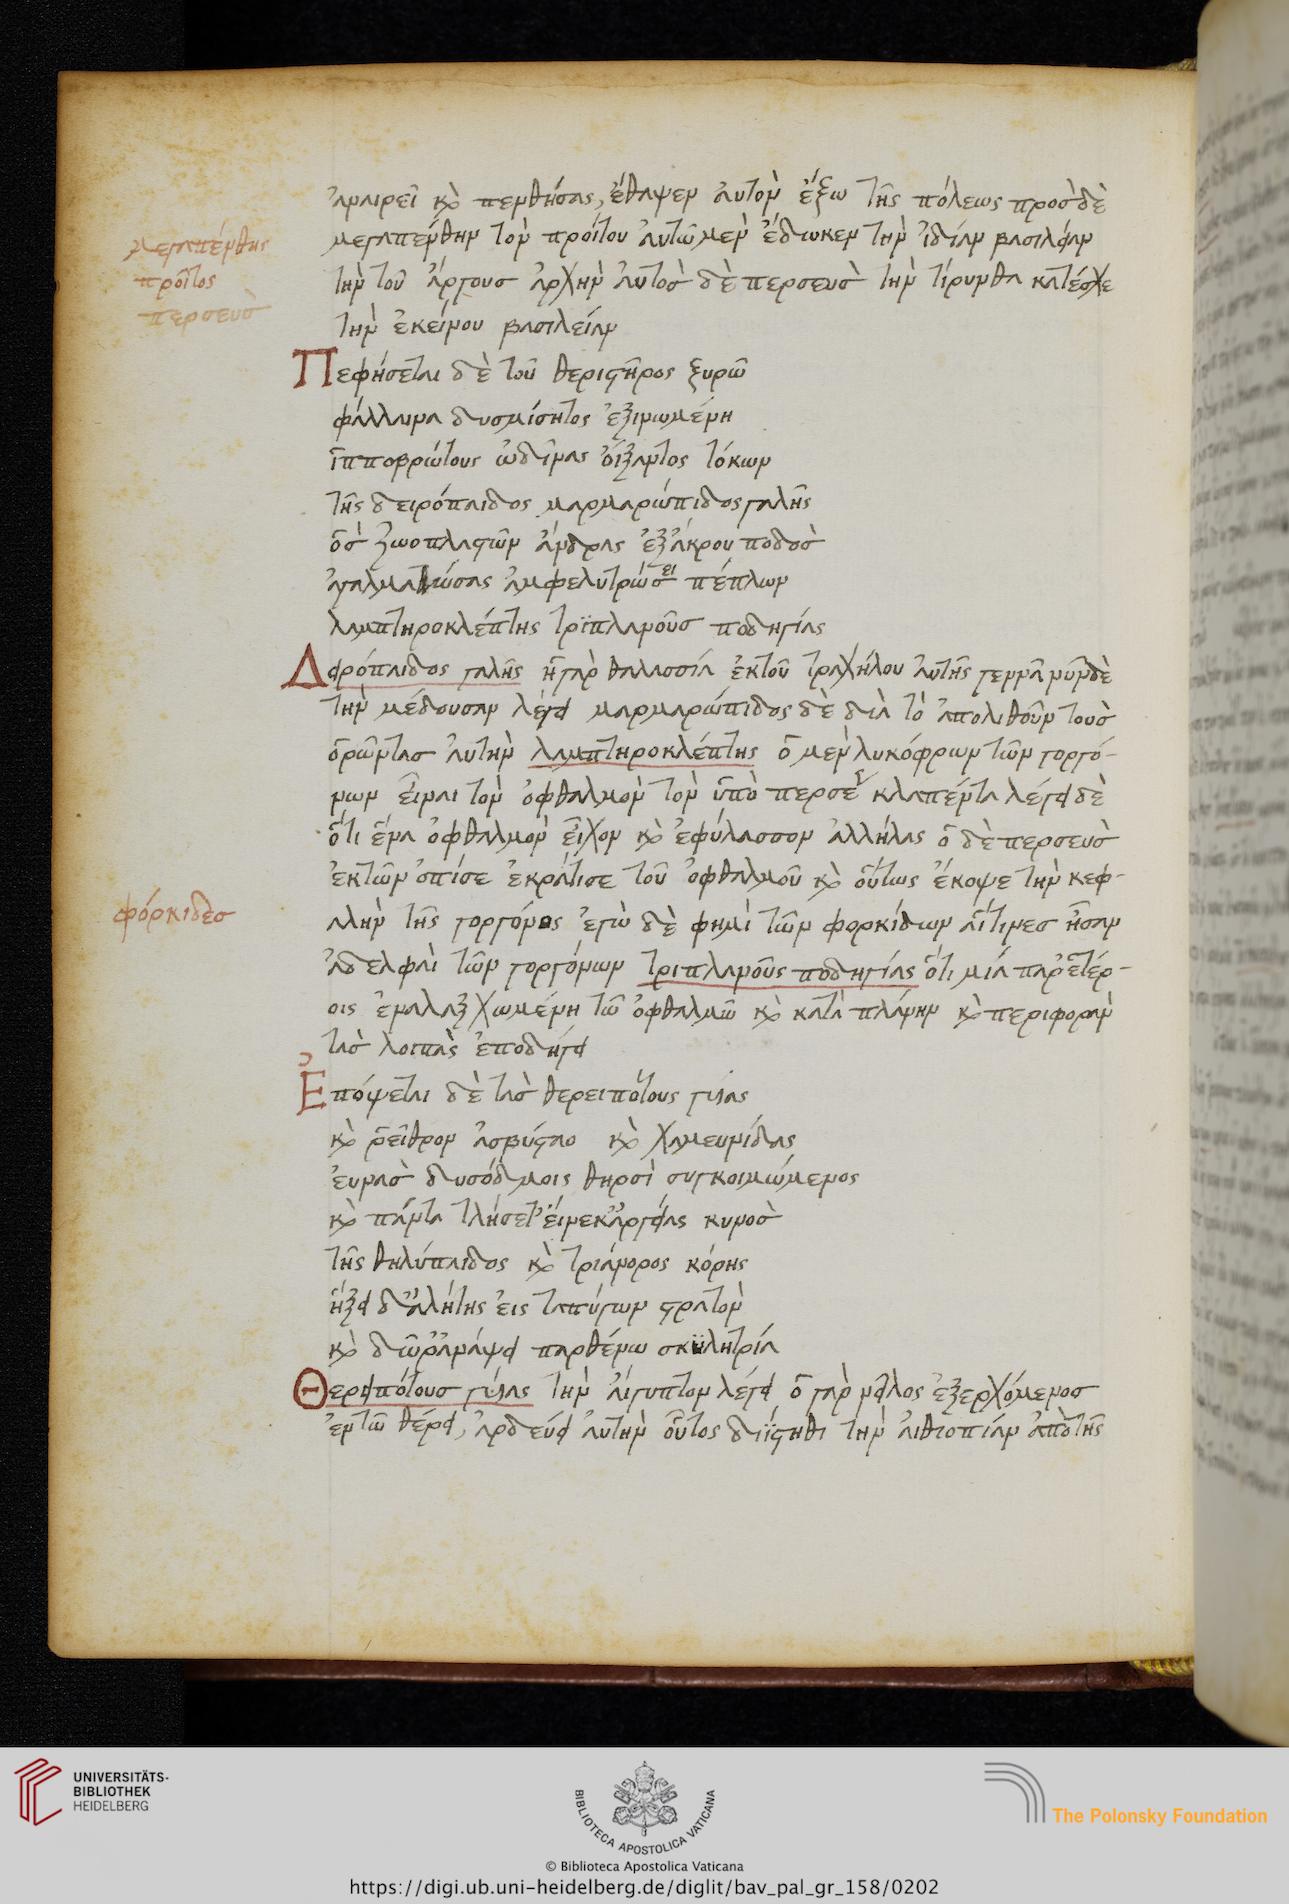 ἀναιρεῖ κὶ πενθήσας, ἔθαψεν ἀυτὸν ἔξω τῆς πόλεως πρὸσ δὲ
μεγαπένθης
μεγαπένθην τὸν πρόίτου ἀυτῶ μὲν ἔδωκεν τὴν ἰδίαν βασιλείαν
προῖτος
τὴν τοῦ ἄργουσ ἀρχὴν ἀυτὸσ δὲ περσευσ τὴν τίρυνθα κατέσχε
περσευσ
τὴν ἐκείνου βασιλείαν
Πεφήσεται δὲ τοῦ θεριστῆρος ξυρῶ
φάλλαινα δυσμίσητος ἐξινωμένη
ἱπποβρώτους ὠδῖνας οἴξαντος τόκων
τῆς δειρόπαιδος μαρμαρώπιδος γαλῆς
ὃσ ζωοπλαστῶν ἄνδρας ἐξ ἄκρου ποδὸσ
ἀγαλματώσας ἀμφελυτρώσει πέπλων
λαμπτηροκλέπτης τρϊπλανοῦσ ποδηγίας
Δειρόπαιδος γαλῆς ἡ γὰρ θαλασσία ἐκ τοῦ τραχήλου ἀυτῆς γεννᾶ νῦν δὲ
τὴν μέδουσαν λέγει μαρμαρώπιδος δὲ διὰ τὸ ἀπολιθοῦν τοὺσ
ὁρῶντασ ἀυτὴν λαμπτηροκλέπτης ὁ μὲν λυκόφρων τῶν γοργό-
νων εἶναι τὸν ὀφθαλμὸν τὸν ὑπὸ περσε κλαπέντα λέγει δὲ
ὅτι ἕνα ὀφθαλμὸν εἶχον κὶ ἐφύλασσον ἀλλήλας ὁ δὲ περσευσ
ἐκ τῶν ὀπίσε ἐκράτισε τοῦ ὀφθαλμοῦ κὶ οὕτως ἔκοψε τὴν κεφ-
φόρκιδεσ
αλὴν τῆς γοργόνος ἐγὼ δὲ φημὶ τῶν φορκίδων αἵτινεσ ἦσαν
ἀδελφαὶ τῶν γοργόνων τριπλανοῦς ποδηγίας ὅτι μία παρ' ἑτέρ-
οις ἐναλαξ χωμένη τῶ ὀφθαλμῶ κὶ κατὰ πλάνην κὶ περιφορὰν
τὰσ λοιπὰς ἐποδήγει
Ἐπόψεται δὲ τὰσ θερειπότους γύιας
κὶ ῥεῖθρον ἀσβύσταο κὶ χαμευνίδας
ἐυνὰσ δυσόδμοις θηρσὶ συγκοιμώμενος
κὶ πάντα τλήσετ' εἵνεκ' ἀργείας κυνὸσ
τῆς θηλύπαιδος κὶ τριάνορος κόρης
ἥξει δ' ἀλήτης εις ἰαπύγων στρατὸν
κὶ δῶρ' ἀνάψει παρθένω σκυλητρία
Θερειπότουσ γύιας τὴν ἀίγυπτον λέγει ὁ γὰρ νεῖλος ἐξερχόμενοσ
ἐν τῶ θέρει, ἀρδεύει ἀυτὴν οὗτος διΐστησι τὴν ἀιθιοπίαν ἀπὸ τῆς
UNIVERSITÄTS-
BIBLIOTHEK
HEIDELBERG
BIBLIOTECA APOSTOLICA VATICANA
The Polonsky Foundation
© Biblioteca Apostolica Vaticana
https://digi.ub.uni-heidelberg.de/diglit/bav_pal_gr_158/0202